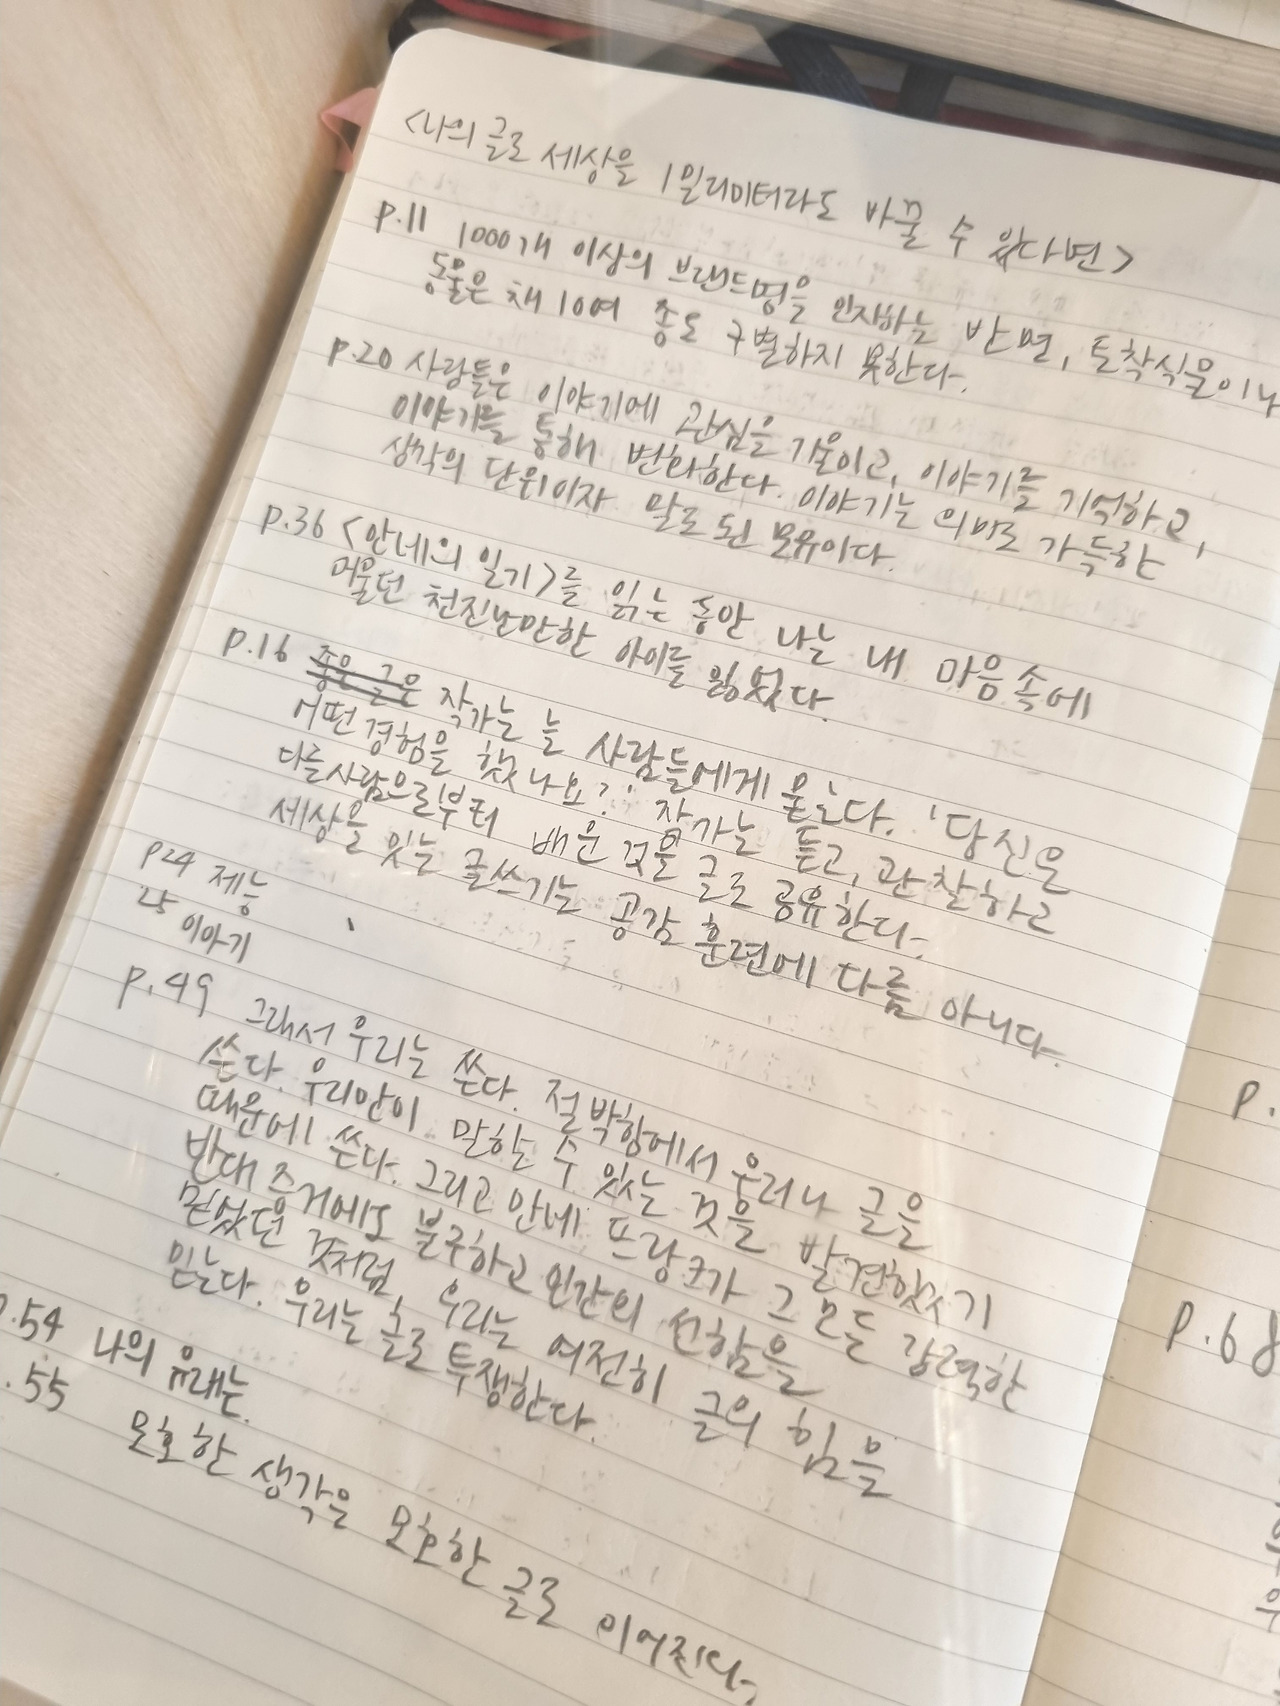 <나의 글로 세상을 1밀리미터라도 바꿀 수 있다면>
p.11 1000개 이상의 브랜드명을 인지하는 반면, 토착식물이나
동물은 채 10여 종도 구별하지 못한다.
p.20 사람들은 이야기에 관심을 기울이고, 이야기를 기억하고,
이야기를 통해 변화한다. 이야기는 의미로 가득한
생각의 단위이자 말로 된 모유이다.
p.36 <안네의 일기>를 읽는 동안 나는 내 마음 속에
머물던 천진난만한 아이를 잃었다.
p.16 좋은 글은 작가는 늘 사람들에게 묻는다. '당신은
어떤 경험을 했나요?' 작가는 듣고, 관찰하고
다른 사람으로부터 배운 것을 글로 공유한다.
세상을 잇는 글쓰기는 공감 훈련에 다름 아니다.
p24 제능
25 이야기
p.49 그래서 우리는 쓴다. 절박함에서 우러나 글을
쓴다. 우리만이 말할 수 있는 것을 발견했기
때문에 쓴다. 그리고 안네 프랑크가 그 모든 강력한
반대 증거에도 불구하고 인간의 선함을
믿었던 것처럼, 우리는 여전히 글의 힘을
믿는다. 우리는 글로 투쟁한다.
p.54 나의 유래는
.55 모호한 생각은 모호한 글로 이어진다.
p.
p.68